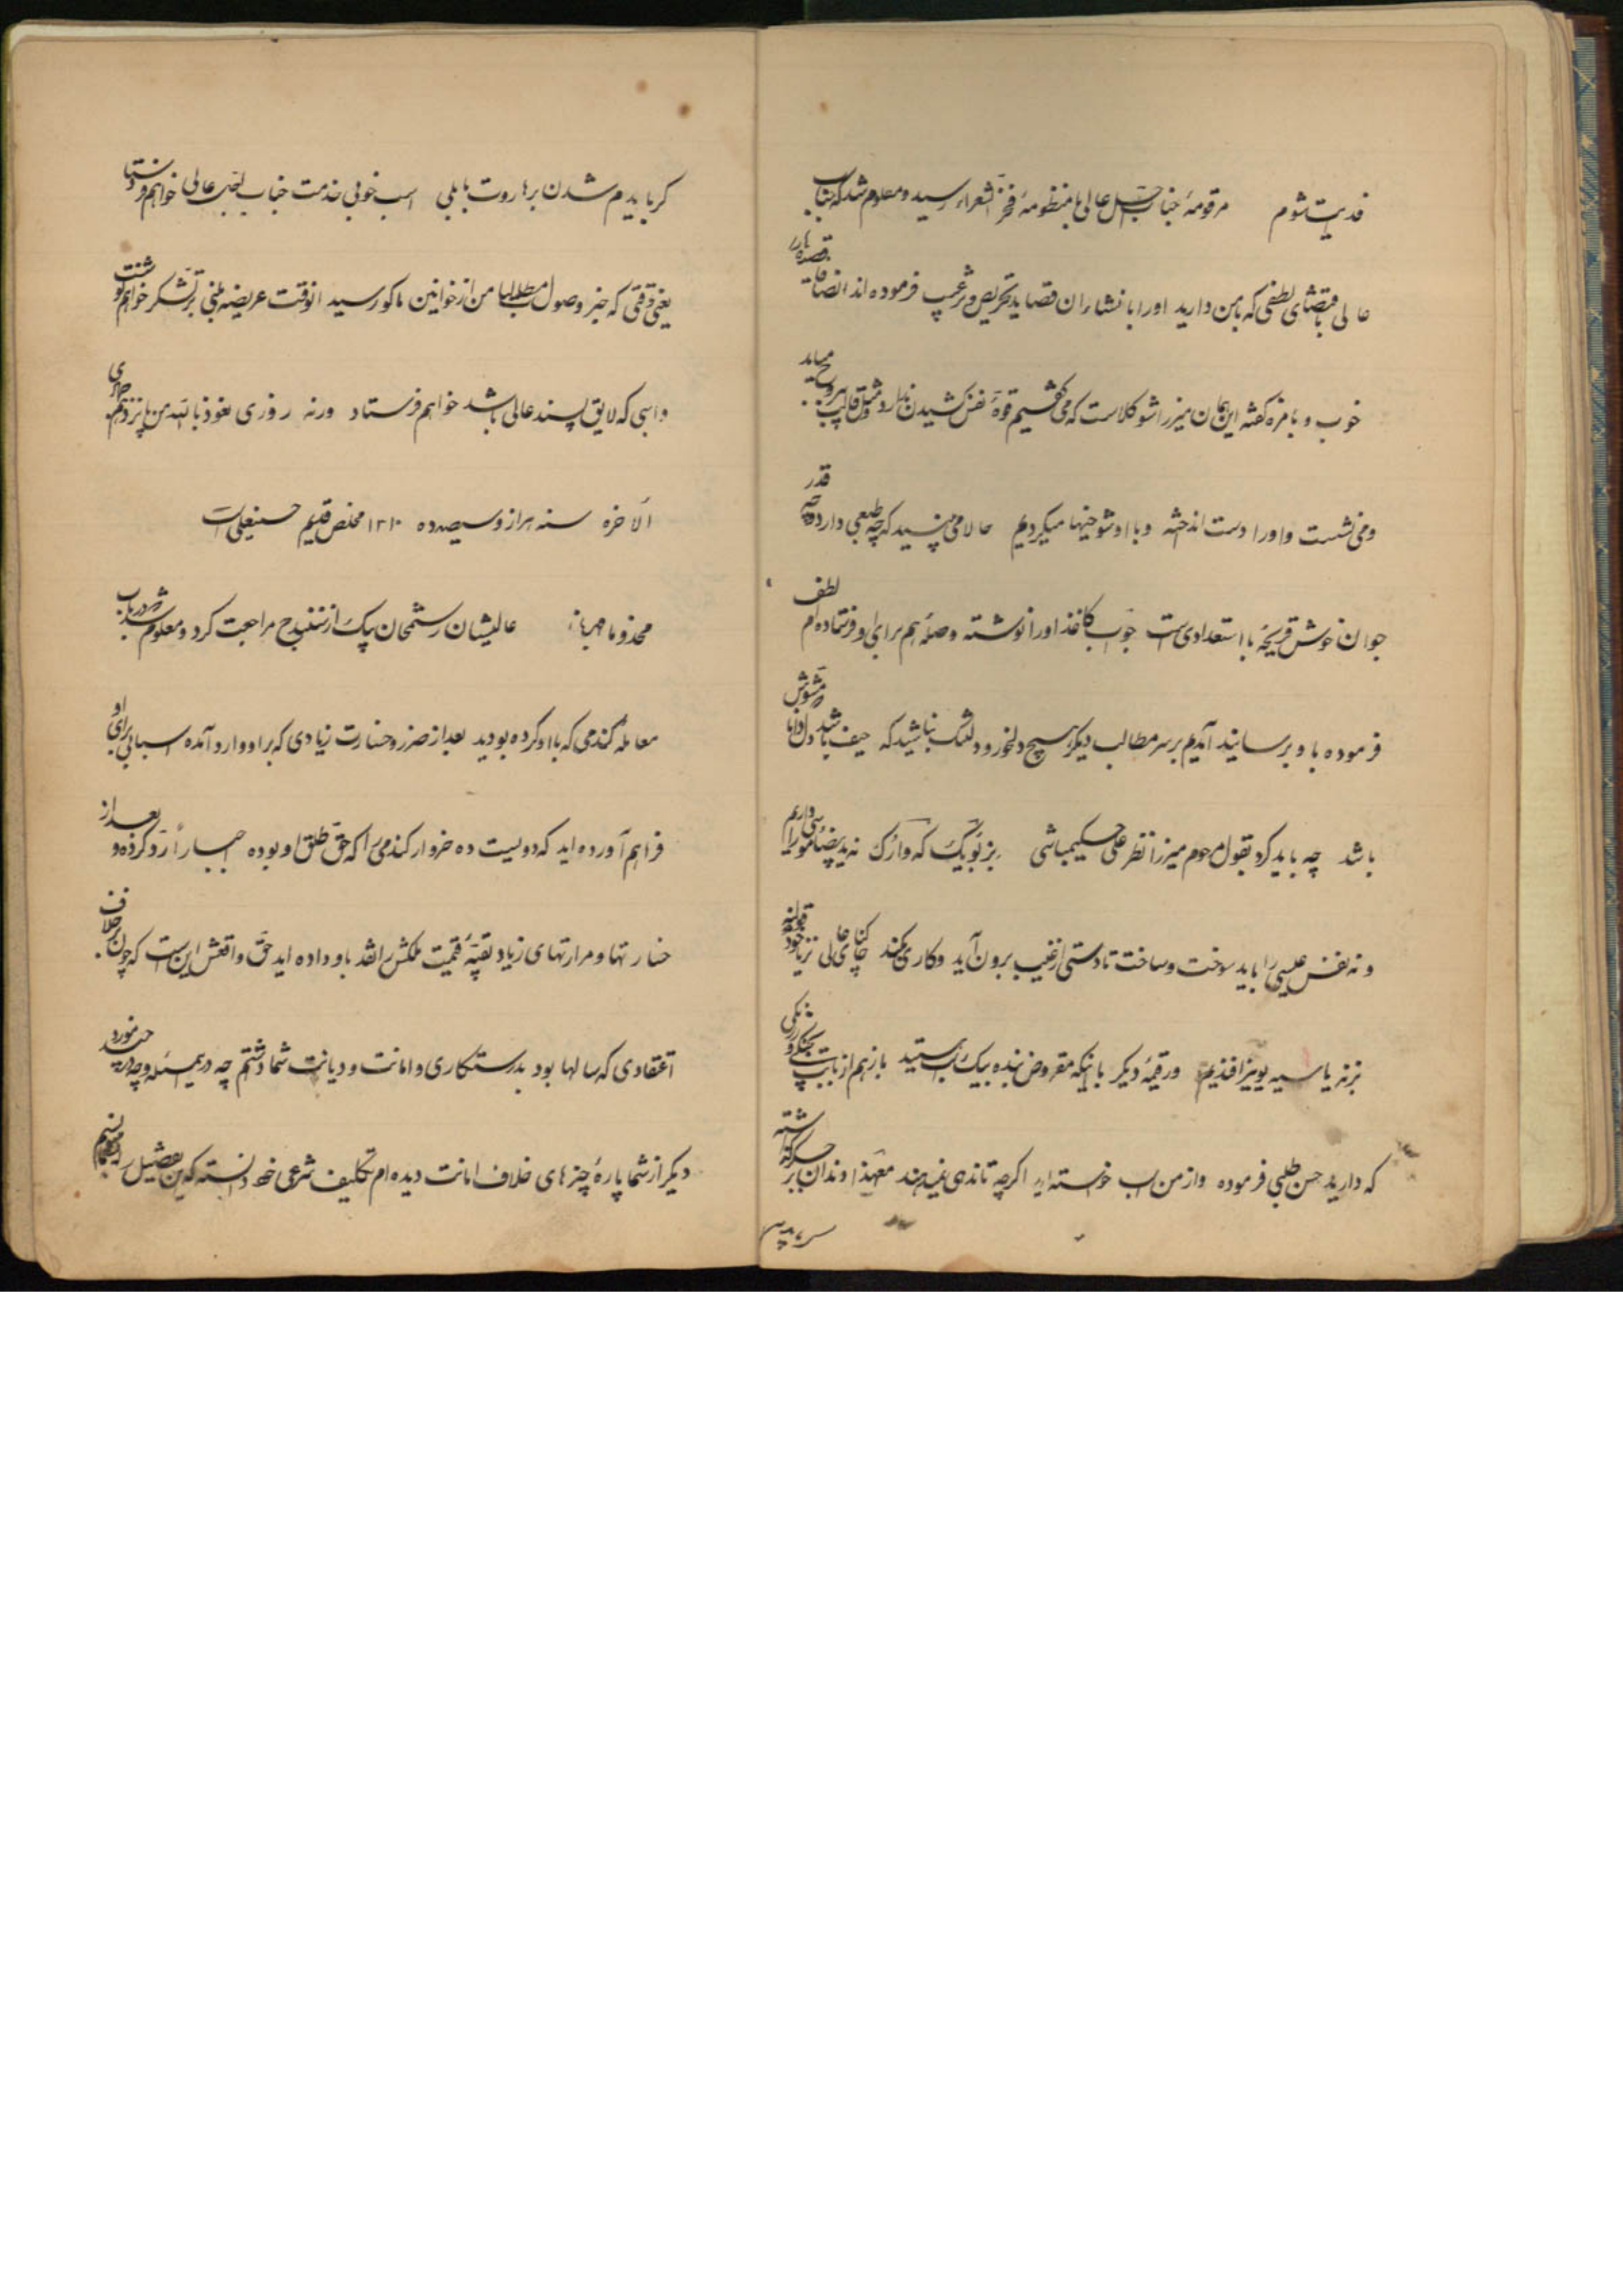 فدیت شوم مرقومهٔ جناب اجل عالی با منظومهٔ فخر الشعراء رسید و معلوم شد که جناب
عالی باقتضای لطفی که بامن دارید اورا بانشاء ان قصاید تحریص و ترغیب فرموده اند انصافا قصیده را
خوب و بامزه گفته این همان میرزا شوکلاست که می گفتیم قوهٔ نفس کشیدن ندارد و مثل قالب بیروح میاید
و می نشست و اورا دست انداخته و با او شوخیها میکردیم حالا می بینید که چه طبعی دارد چه قدر
جوان خوش قریحهٔ با استعدادی است جواب کاغذ اورا نوشته وصلهٔ هم برای او فرستاده ام لطف
فرموده باو برسانید آمدیم بر سر مطالب دیگر هیچ دلخور و دلتنگ نباشید که حیف باشد دل دانا که مشوش
باشد چه باید کرد بقول مرحوم میرزا نظر علی حکیمباشی نه ید بیضای موسی داریم
و نه نفس عیسی را باید سوخت و ساخت تا دستی از غیب برون آید و کاری بکند
ورقیمهٔ دیگر با اینکه مقروض بنده بیک اسب هستید بازهم از بابت
که دارید حسن طلبی فرموده و از من اسب خواسته اید اگرچه تا ندهی نمیدهند معهذا
گر بایدم شدن بر هاروت بابلی اسب خوبی خدمت جناب اجل عالی خواهم فرستاد
یعنی وقتی که خبر وصول مطالبات من از خوانین ماکو رسید انوقت عریضه مبنی بر تشکر خواهم نوشت
و اسبی که لایق پسند عالی باشد خواهم فرستاد ورنه روزی نعوذ بالله من پانزدهم جمادی
الاخره سنه هزار و سیصد و ده ۱۳۱۰ مخلص قدیم حسینعلی است
مخدوما مهربانا عالیشان رستمخان بیک از سنندج مراجعت کرد و معلوم شد در باب
معاملهٔ گندمی که با او کرده بودید بعد از ضرر و خسارت زیادی که بر او وارد آمده اسبابی برای او
فراهم آورده اید که دویست ده خروار گندمی را که حق طلق او بوده اجبارا رد کرده و بعد از
خسارتها و مرارتهای زیاد بقیهٔ قیمت ملکش را نقد باو داده اید حق واقعش این است که چون بر خلاف
اعتقادی که سالها بود بدرستکاری و امانت و دیانت شما داشتم چه در این مسئله و چه در چند مورد
دیگر از شما پارهٔ چیزهای خلاف امانت دیده ام تکلیف شرعی خود دانسته که